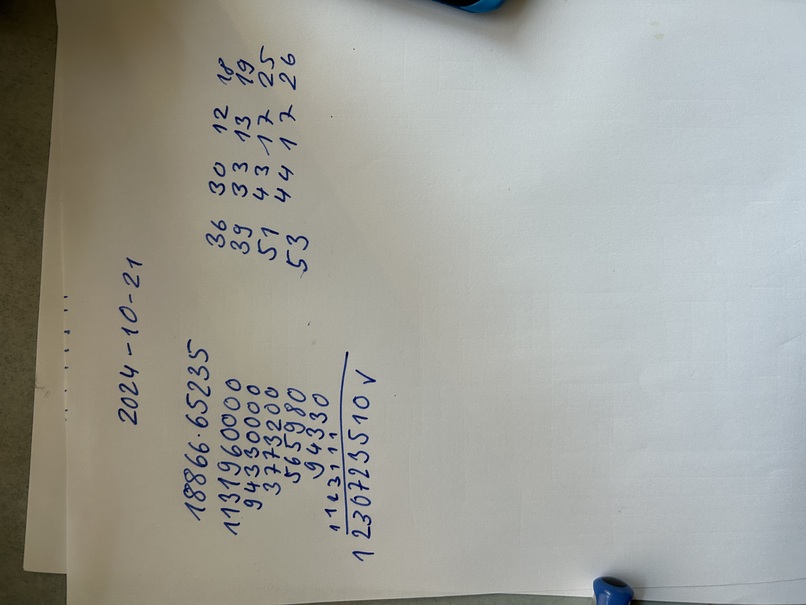 2024-10-21
18866·65235
1131960000
94330000
3773200
565980
94330
1123111
1230723510 √
36 30 12 18
39 33 13 19
51 43 17 25
53 44 17 26